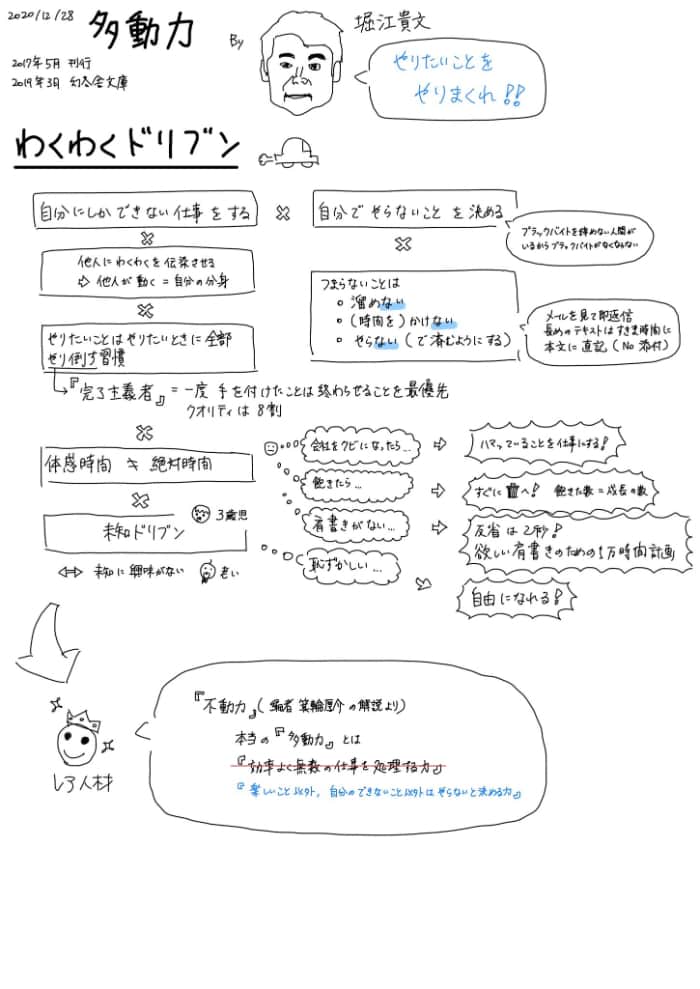 2020/12/28
多動力
By
堀江貴文
2017年5月 刊行
2019年3月 幻冬舎文庫
やりたいことを
やりまくれ!!
わくわくドリブン
自分にしかできない仕事をする
×
自分でやらないことを決める
ブラックバイトを辞めない人間が
いるからブラックバイトがなくならない
×
×
他人にわくわくを伝染させる
⇨ 他人が動く = 自分の分身
つまらないことは
○ 溜めない
○ (時間を)かけない
○ やらない(で済むようにする)
メールを見て即返信
長めのテキストはすきま時間に
本文に直記(No 添付)
×
やりたいことはやりたいときに全部
やり倒す習慣
→『完了主義者』= 一度 手を付けたことは終わらせることを最優先
クオリティは8割
×
体感時間 ≠ 絶対時間
×
未知ドリブン
3歳児
⇔ 未知に興味がない
老い
会社をクビになったら…
⇨ ハマっていることを仕事にする!
飽きたら…
⇨ すぐに🗑へ! 飽きた数=成長の数
肩書きがない…
⇨ 反省は2秒!
欲しい肩書きのための1万時間計画
恥ずかしい…
⇨ 自由になれる!
レア人材
『不動力』(編者 箕輪厚介の解説より)
本当の『多動力』とは
『効率よく無数の仕事を処理する力』
『楽しいこと以外、自分のできないこと以外はやらないと決める力』